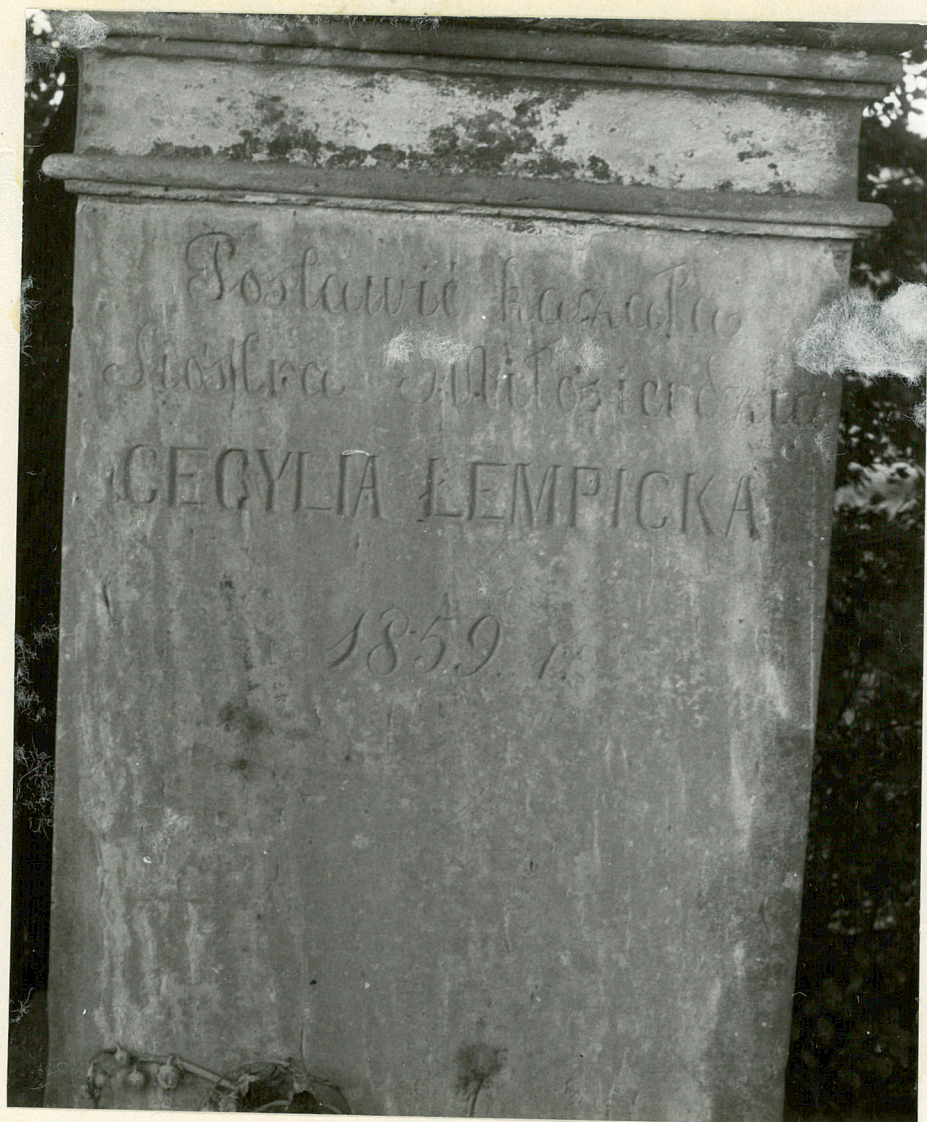 Postawić kazała
Siostra Miłosierdzia
CECYLIA ŁEMPICKA
1859. r.